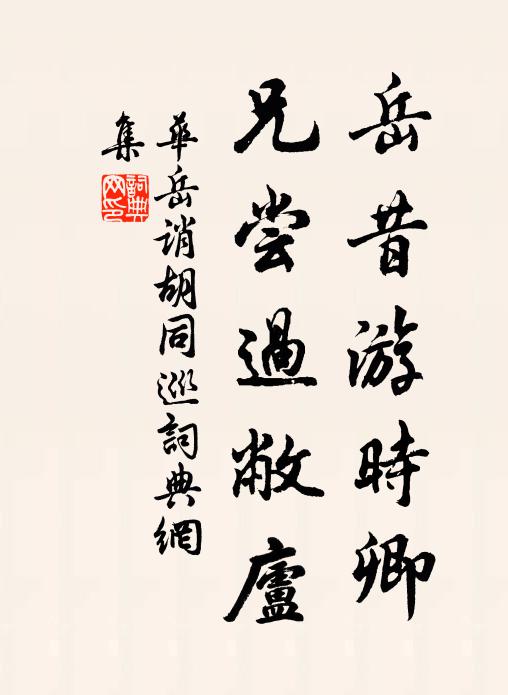 岳昔游時卿
兄尝過敝廬
華岳誚胡同巡詞典網
集
詞典網印